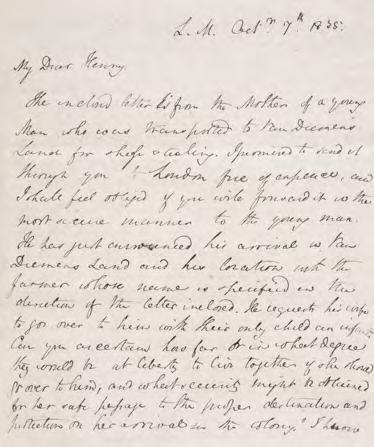 L. M. Octr. 7th 1835.
My Dear Henry,
The inclosd letter is from the Mother of a young
Man who was transported to Van Diemens
Land for sheep stealing. I promised to send it
through you to London free of expence, and
I shall feel obliged if you will forward it in the
most secure manner to the young man.
He has just announced his arrival in Van
Diemens Land and his location with the
farmer whose name is specified in the
direction of the letter inclosed. He requests his wife
to go over to him with their only child an infant
Can you ascertain how far or in what degree
they would be at liberty to live together if she should
go over to him, and what security might be obtained
for her safe passage to the proper destination and
protection on her arrival in the Colony? I know